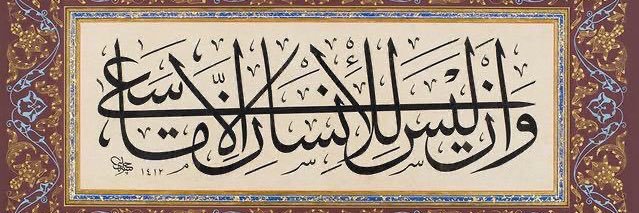 وَأَنْ لَيْسَ لِلْإِنْسَانِ إِلَّا مَا سَعَى
١٤١٢